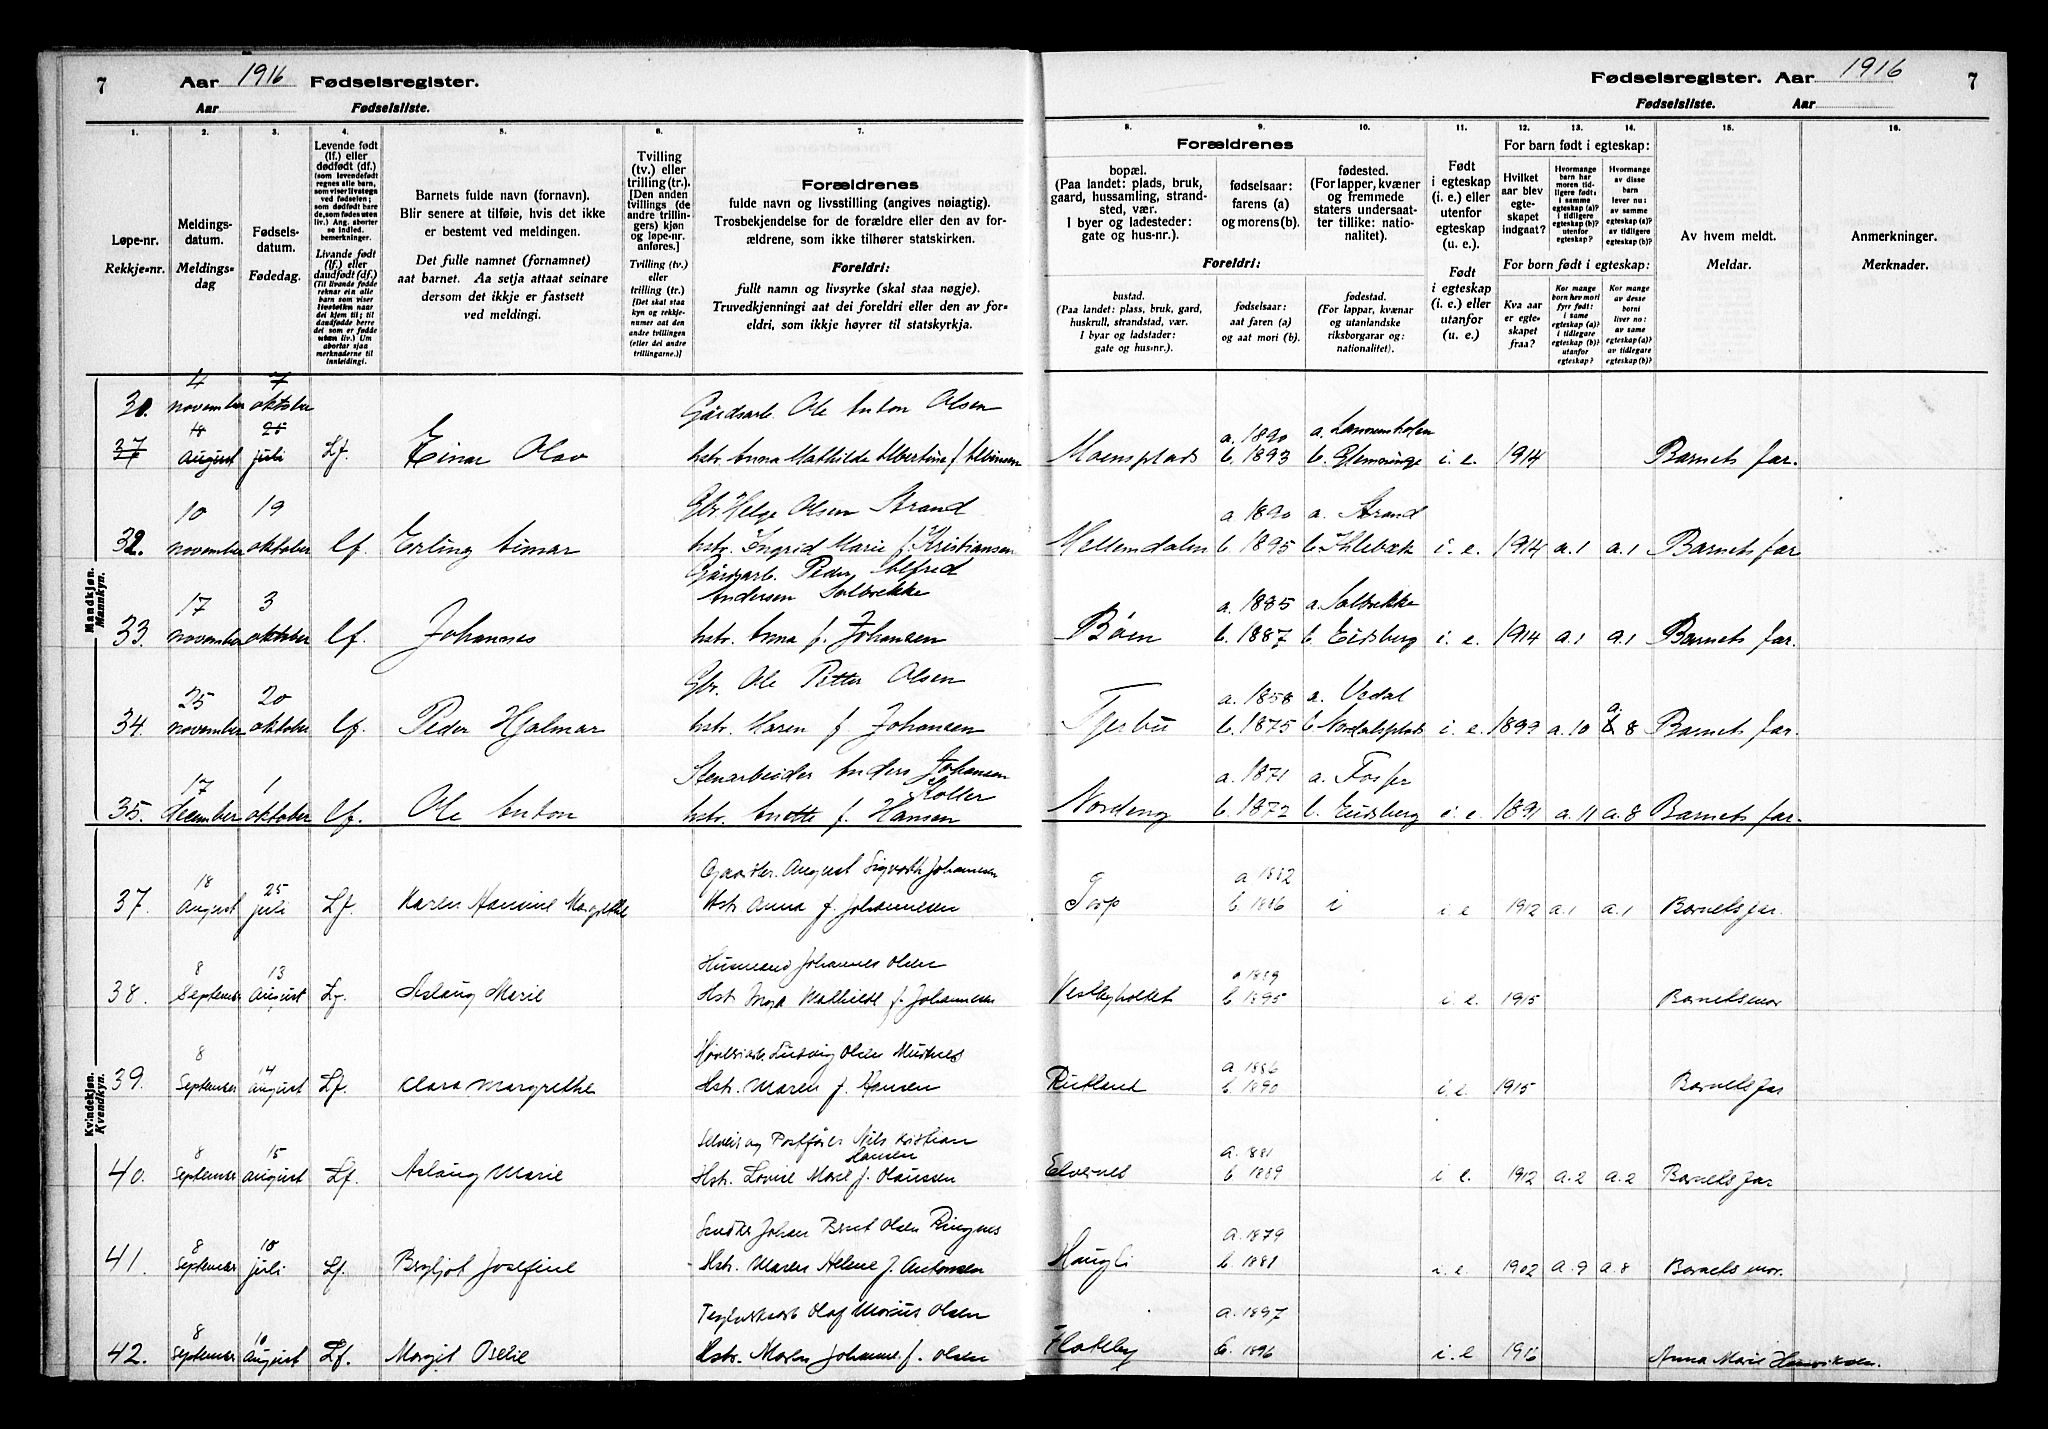 7 Aar 1916 Fødselsregister.
Aar Fødselsliste.
Fødselsregister. Aar 1916 7
Fødselsliste. Aar
1. 2. 3. 4. 5. 6. 7. 8. 9. 10. 11. 12. 13. 14. 15. 16.
Løpe-nr.
Rekkje-nr.
Meldings-
datum.
Meldings-
dag
Fødsels-
datum.
Fødedag.
Levende født
(lf.) eller
dødfødt (df.)
(som levendefødt
regnes alle barn,
som viser livstegn
ved fødselen;
som dødfødt bar-
de, som fødes uten
liv.) Ang. aborter
se indled.
bemerkninger.
Livande fødd
(lf.) eller
daudfødt (df.)
(Til livande fødde
reknar ein alle
barn som viser
livsteikn naar
dei kjem til; til
daudfødde berre
dei som er fødde
utan liv.) Um
abortar sjaa
merknaderne til
innleidingi.
Barnets fulde navn (fornavn).
Blir senere at tilføie, hvis det ikke
er bestemt ved meldingen.
Det fulle namnet (fornamnet)
aat barnet. Aa setja attaat seinare
dersom det ikkje er fastsett
ved meldingi.
Tvilling
(tv.) eller
trilling (tr.).
[Den anden
tvillings (de
andre trillin-
gers) kjøn
og løpe-nr.
anføres.]
Tvilling (tv.)
eller
trilling (tr.)
[Det skal staa
kyn og rekkje-
nummer aat den
andre tvillingen
(eller dei andre
trillingarne.)]
Forældrenes
fulde navn og livsstilling (angives nøiagtig).
Trosbekjendelse for de forældre eller den av for-
ældrene, som ikke tilhører statskirken.
Foreldri:
fullt namn og livsyrke (skal staa nøgje).
Truvedkjenningi aat dei foreldri eller den av for-
eldri, som ikkje høyrer til statskyrkja.
Forældrenes
bopæl.
(Paa landet: plads, bruk,
gaard, hussamling, strand-
sted, vær.
I byer og ladesteder:
gate og hus-nr.).
fødselsaar:
farens (a)
og morens(b).
fødested.
(For lapper, kvæner
og fremmede
staters undersaat-
ter tillike: natio-
nalitet).
Foreldri:
bustad.
(Paa landet: plass, bruk, gard,
huskrull, strandstad, vær.
I byar og ladstader:
gate og hus-nr.).
fødselsaar:
aat faren (a)
og aat mori (b).
fødestad.
(For lappar, kvænar
og utanlandske
riksborgarar og:
nationalitet).
Født
i egteskap
(i. e.) eller
utenfor
egteskap
(u. e.).
Født
i egteskap
(i. e.) eller
utanfor
(u. e.)
For barn født i egteskap:
Hvilket
aar blev
egte-
skapet
indgaat?
Hvormange
barn har
moren tid-
ligere født:
i samme
egteskap (a)?
i tidligere
egteskap (b)?
utenfor
egteskap?
Hvormange
av disse
barn
lever nu:
av samme
egteskap (a)?
av tidligere
egteskap (b)?
For born født i egteskap:
Kva aar
er egte-
skapet
fraa?
Kor mange
born hev mori
fyrr født:
i same
egteskap (a)?
i tidlegare
egteskap (b)?
utanfor
egteskap?
Kor mange
av desse
borni
liver no:
av same
egteskap (a)?
av tidlegare
egteskap (b)?
Av hvem meldt.
Meldar.
Anmerkninger.
Merknader.
Mandkjøn.
Mannkyn.
4 7
31. november oktober Gårdsarb. Ole Anton Olsen
18 25 a. 1890
37 August juli Lf. Einar Olav hstr. Anna Mathilde Albertine f. Moensplads b. 1893 b. Glemminge i. e. 1914 Barnets far.
10 19 Gbr. Helge Olsen Strand a. 1890 a. Strand
32. november oktober lf. Erling Aimar hstr. Ingrid Marie f. Kristiansen Mellemdalen b. 1895 b. i. e. 1914 a. 1 a. 1 Barnets far
Gårdsarb. Peder Alfred
17 3 Andersen Solbrekke a. 1885 a. Solbrekke
33. november oktober lf. Johannes hstr. Anna f. Johansen Bøen b. 1887 b. Eidsberg i. e. 1914 a. 1 a. 1 Barnets far.
25 20 Gbr. Ole Petter Olsen a. 1858 a.
34. november oktober lf. Peder Hjalmar hstr. Karen f. Johansen Tjerbu b. 1875 b. Nordalsplads i. e. 1899 a. 10 a. 8 Barnets far.
17 1 Stenarbeider Anders Johansen a. 1871 a. Fosser
Koller
35. desember oktober lf. Ole Anton hstr. Anette f. Hansen Nordeng b. 1872 b. Eidsberg i. e. 1891 a. 11 a. 8 Barnets far.
Kvindekjøn.
Kvendkyn.
18 25 August Sigvart Johansen a 1882
37. August juli Lf. Karen Hansine Margrethe Hstr Anna f. Johannesen Torp b. 1886 i i e 1912 a. 1 a. 1 Barnets far.
8 13 Husmand Johannes Olsen a 1889
38. September August Lf. Aslaug Marie Hst. Inga Mathilde f. Johannesen Vestbyholtet b 1895 i. e. 1915 Barnets mor
8 14 Ludvig Olsen a. 1886
39. September August Lf. Klara Margrethe Hstr. Maren f. Hansen Rutland b. 1890 i. e. 1915 Barnets far
8 15 Selveier og Postfører Nils Kristian a. 1881
Hansen
40. September August Lf. Aslaug Marie Hstr. Lovise Marie f. Olaussen Elvenes b 1889 i e. 1912 a. 2 a. 2 Barnets far
8 10 Johan Bernt Olsen Ringnes a. 1879
41. September juli Lf. Bergljot Josefine Hstr. Maren Helene f. Antonsen Haugli b. 1881 i. e. 1902 a. 9 a. 8 Barnets mor.
8 10 Olaf Marius Olsen a. 1897
42. September August Lf. Margit Oselie Hstr. Maren Johanne f. Olsen Flateby b. 1896 i. e 1916 Anna Marie Henriksen.